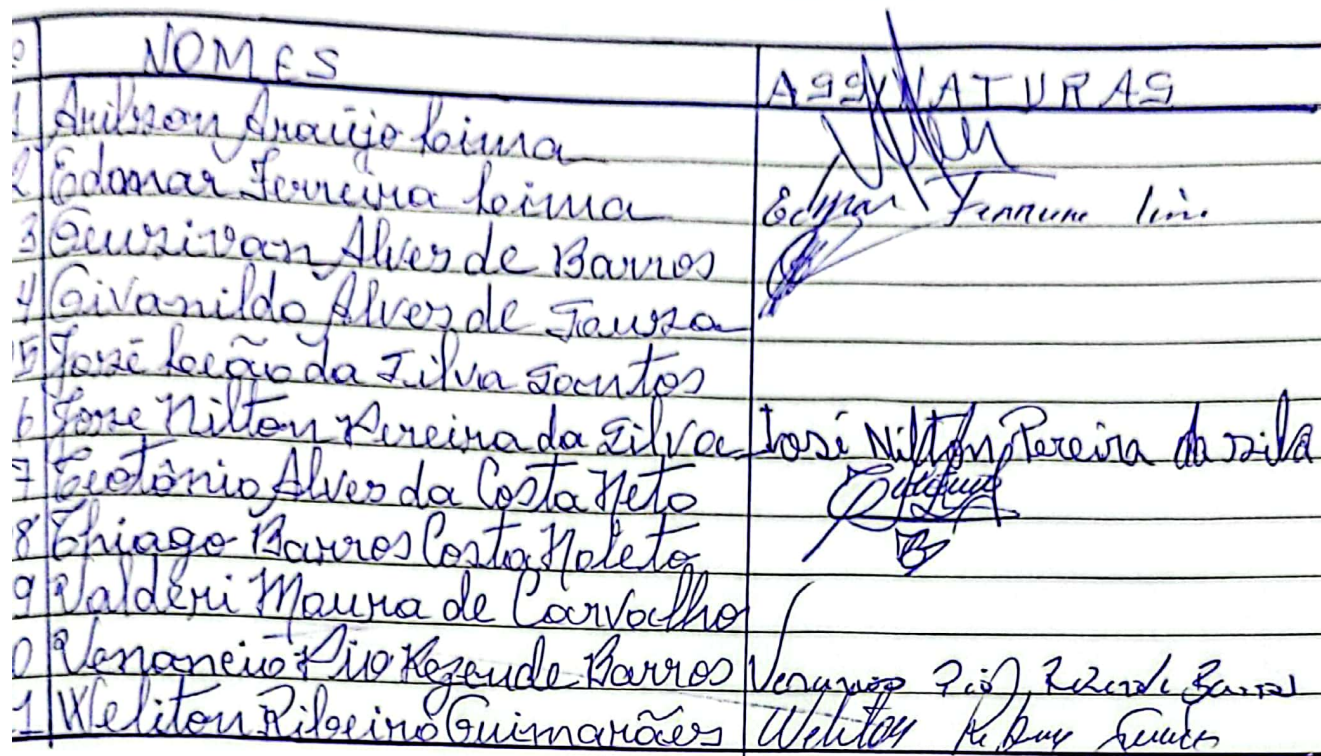 NOMES ASSINATURAS
1 Arilson Araújo Lima
2 Edomar Ferreira Lima Edmar Ferreira lima
3 Eurivan Alves de Barros
4 Givanildo Alves de Souza
5 José Leção da Silva Santos
6 Jose Nilton Pereira da Silva José Nilton Pereira da silva
7 Teotônio Alves da Costa Neto
8 Thiago Barros Costa Noleto
9 Valderi Moura de Carvalho
0 Venancio Pio Rezende Barros Venancio Pio Rezende Barros
1 Weliton Ribeiro Guimarães Weliton